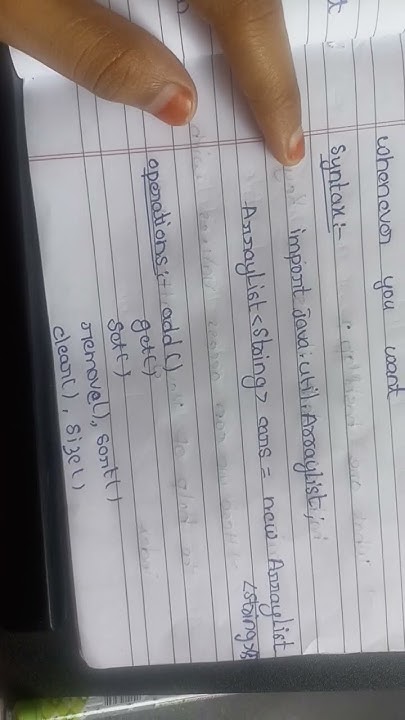 whenever you want
Syntax:-
import java.util.ArrayList;
ArrayList<String> ans = new ArrayList
<String>
operations:- add()
get()
set()
remove(), sort()
clear(), size()